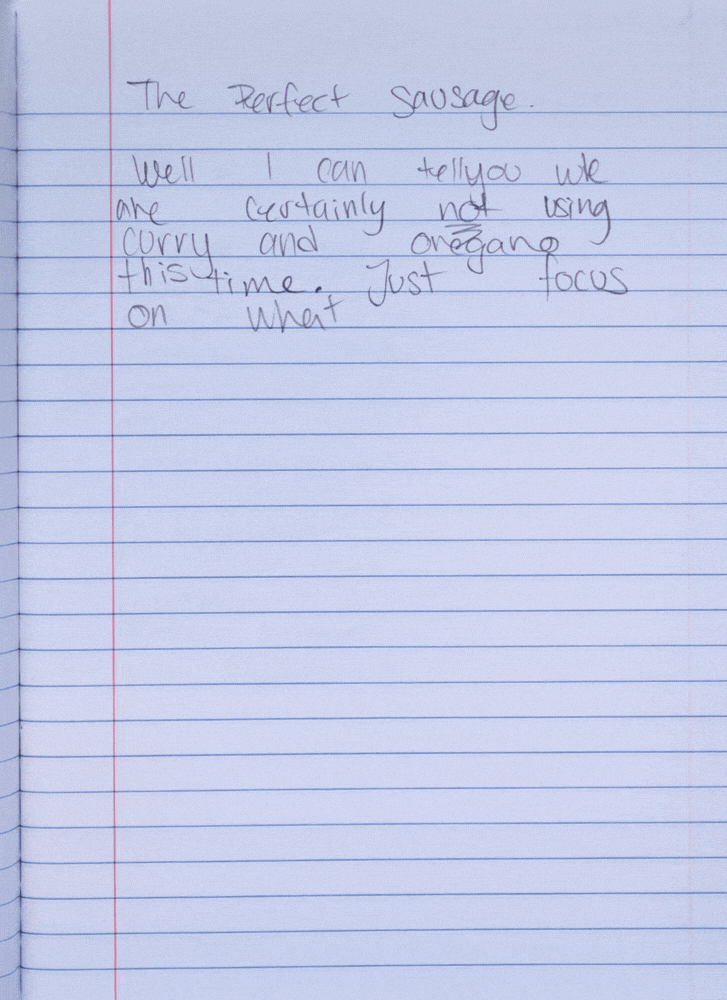 The Perfect Sausage.
Well I can tell you we
are certainly not using
curry and oregano
this time. Just focus
on what